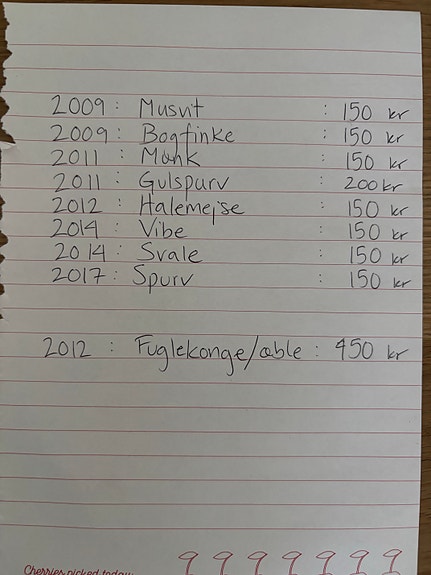 2009 : Musvit : 150 kr
2009 : Bogfinke : 150 kr
2011 : Munk : 150 kr
2011 : Gulspurv : 200 kr
2012 : Halemejse : 150 kr
2014 : Vibe : 150 kr
2014 : Svale : 150 kr
2017 : Spurv : 150 kr
2012 : Fuglekonge/æble : 450 kr
Cherries picked today